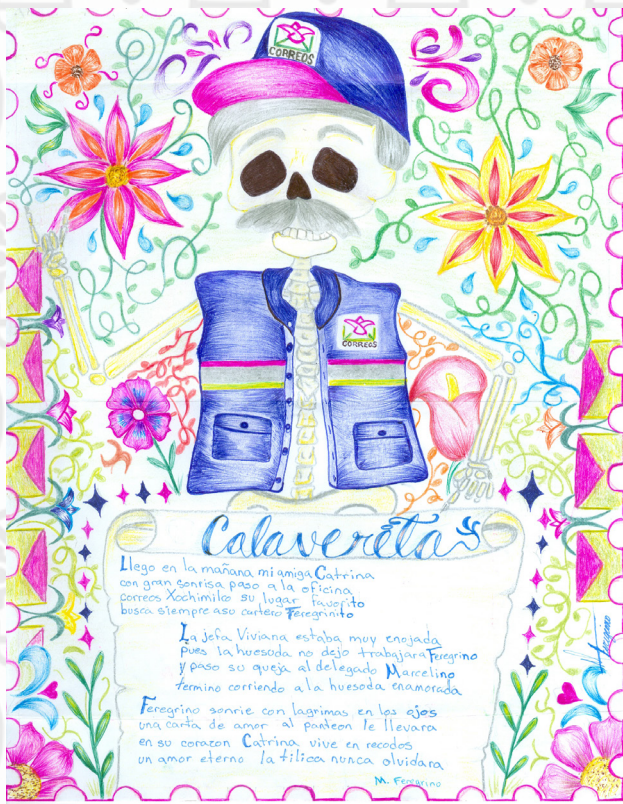 CORREOS
CORREOS
Calavereta
Llego en la mañana mi amiga Catrina
con gran sonrisa paso a la oficina
correos Xochimilco su lugar favorito
busca siempre asu cartero Feregrinito
La jefa Viviana estaba muy enojada
pues la huesoda no dejo trabajara Feregrino
y paso su queja al delegado Marcelino
termino corriendo a la huesoda enamorada
Feregrino sonrie con lagrimas en los ojos
una carta de amor al panteon le llevara
en su corazon Catrina vive en recodos
un amor eterno la tilica nunca olvidara
M. Feregrino